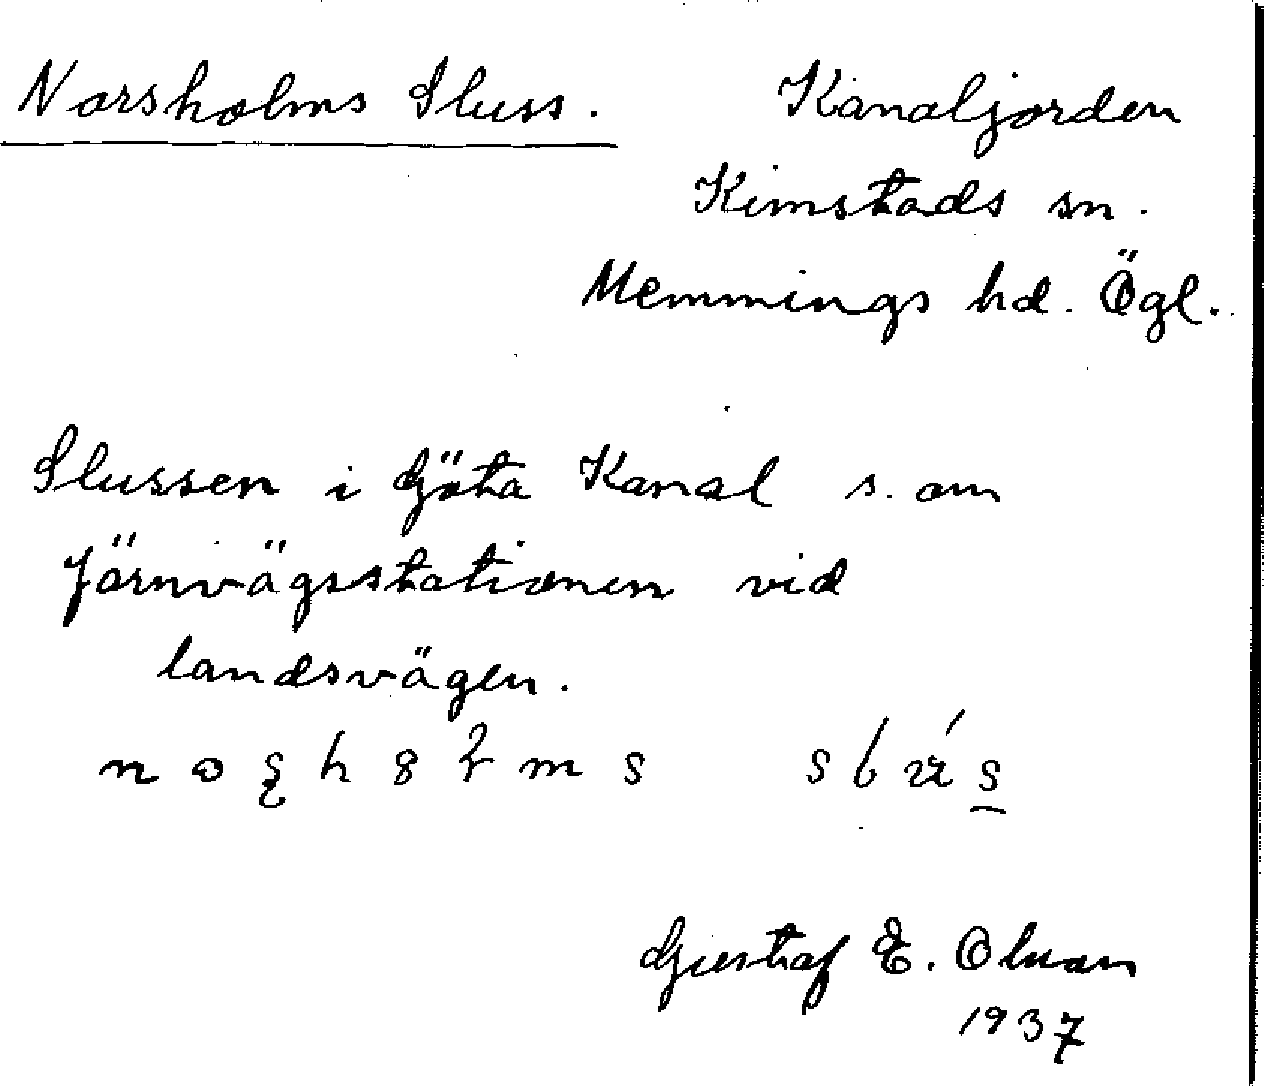 Norsholms Sluss. Kanaljorden
Kimstads sn.
Memmings hd. Ögl.
Slussen i Göta Kanal s. om
Järnvägsstationen vid
landsvägen.
Gustaf E. Olson
1937